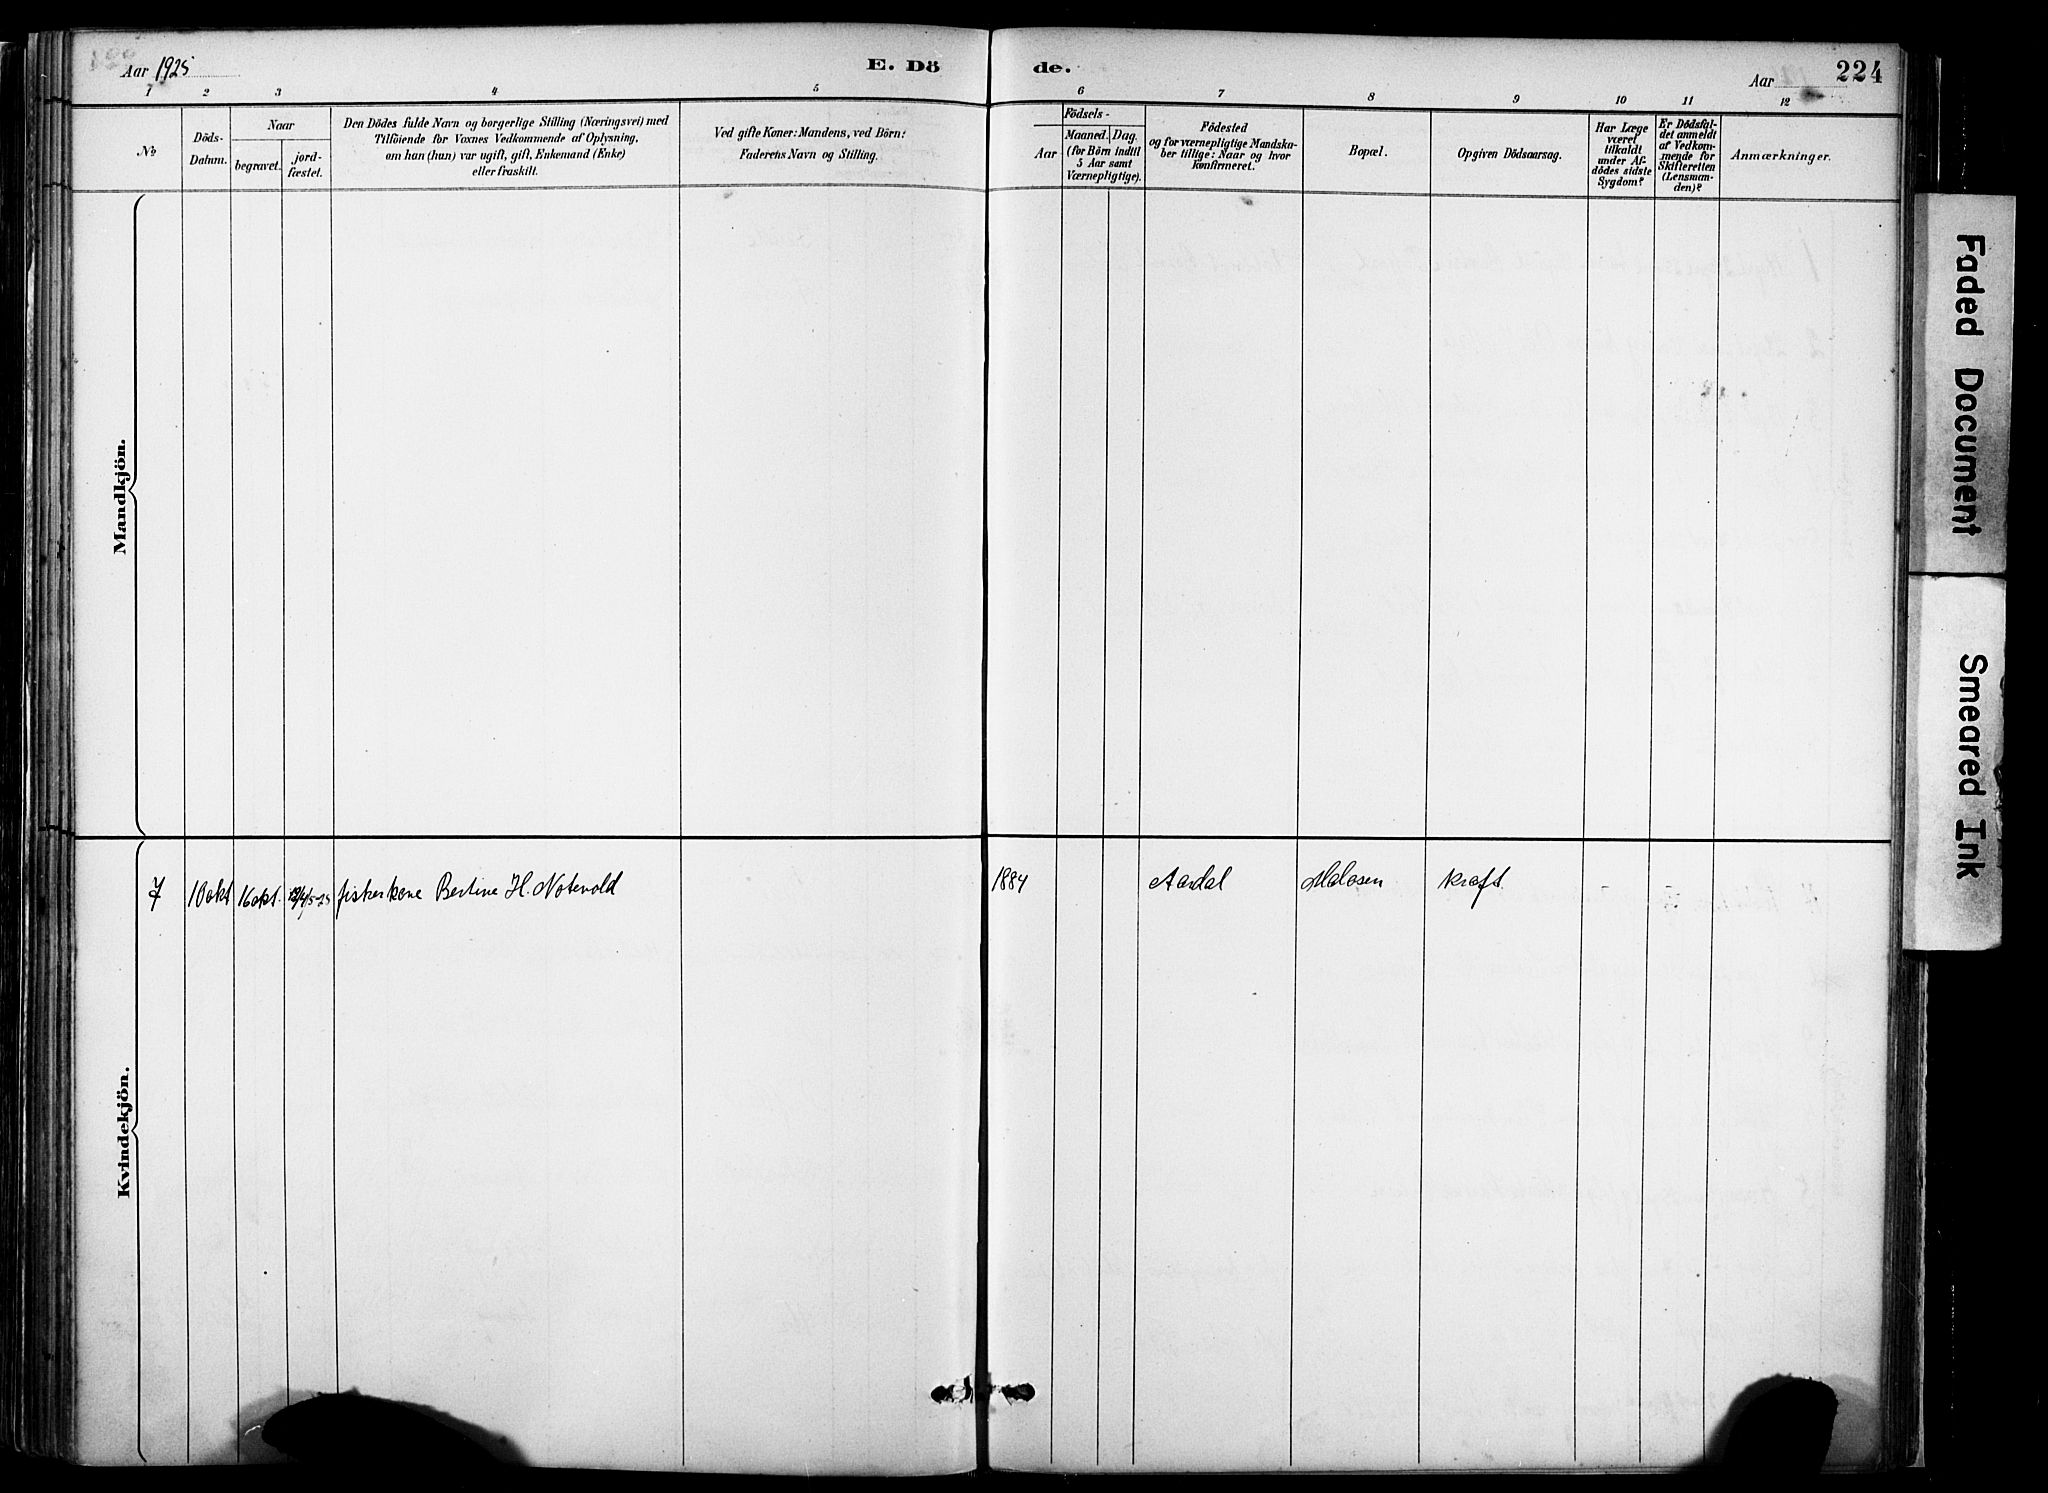 Aar 1925
E. Dö
de.
Aar
224
1 2 3 4 5 6 7 8 9 10 11 12
No
Döds-
Datum.
Naar
begravet.
jord-
fæstet.
Den Dödes fulde Navn og borgerlige Stilling (Næringsvei) med
Tilföiende for Voxnes Vedkommende af Oplysning,
om han (hun) var ugift, gift, Enkemand (Enke)
eller fraskilt.
Ved gifte Koner: Mandens, ved Börn:
Faderens Navn og Stilling.
Födsels-
Aar
Maaned.
Dag.
(for Börn indtil
5 Aar samt
Værnepligtige).
Födested
og for værnepligtige Mandska-
ber tillige: Naar og hvor
konfirmeret.
Bopæl.
Opgiven Dödsaarsag.
Har Læge
været
tilkaldt
under Af-
dödes sidste
Sygdom?
Er Dödsfal-
det anmeldt
af Vedkom-
mende for
Skifteretten
(Lensman-
den)?
Anmærkninger.
Mandkjön.
Kvindekjön.
7 10 okt 16 okt. fiskerkone Bertine H. Notevold 1884 Aardal Malosen Kræft.
Faded Document
Smeared Ink